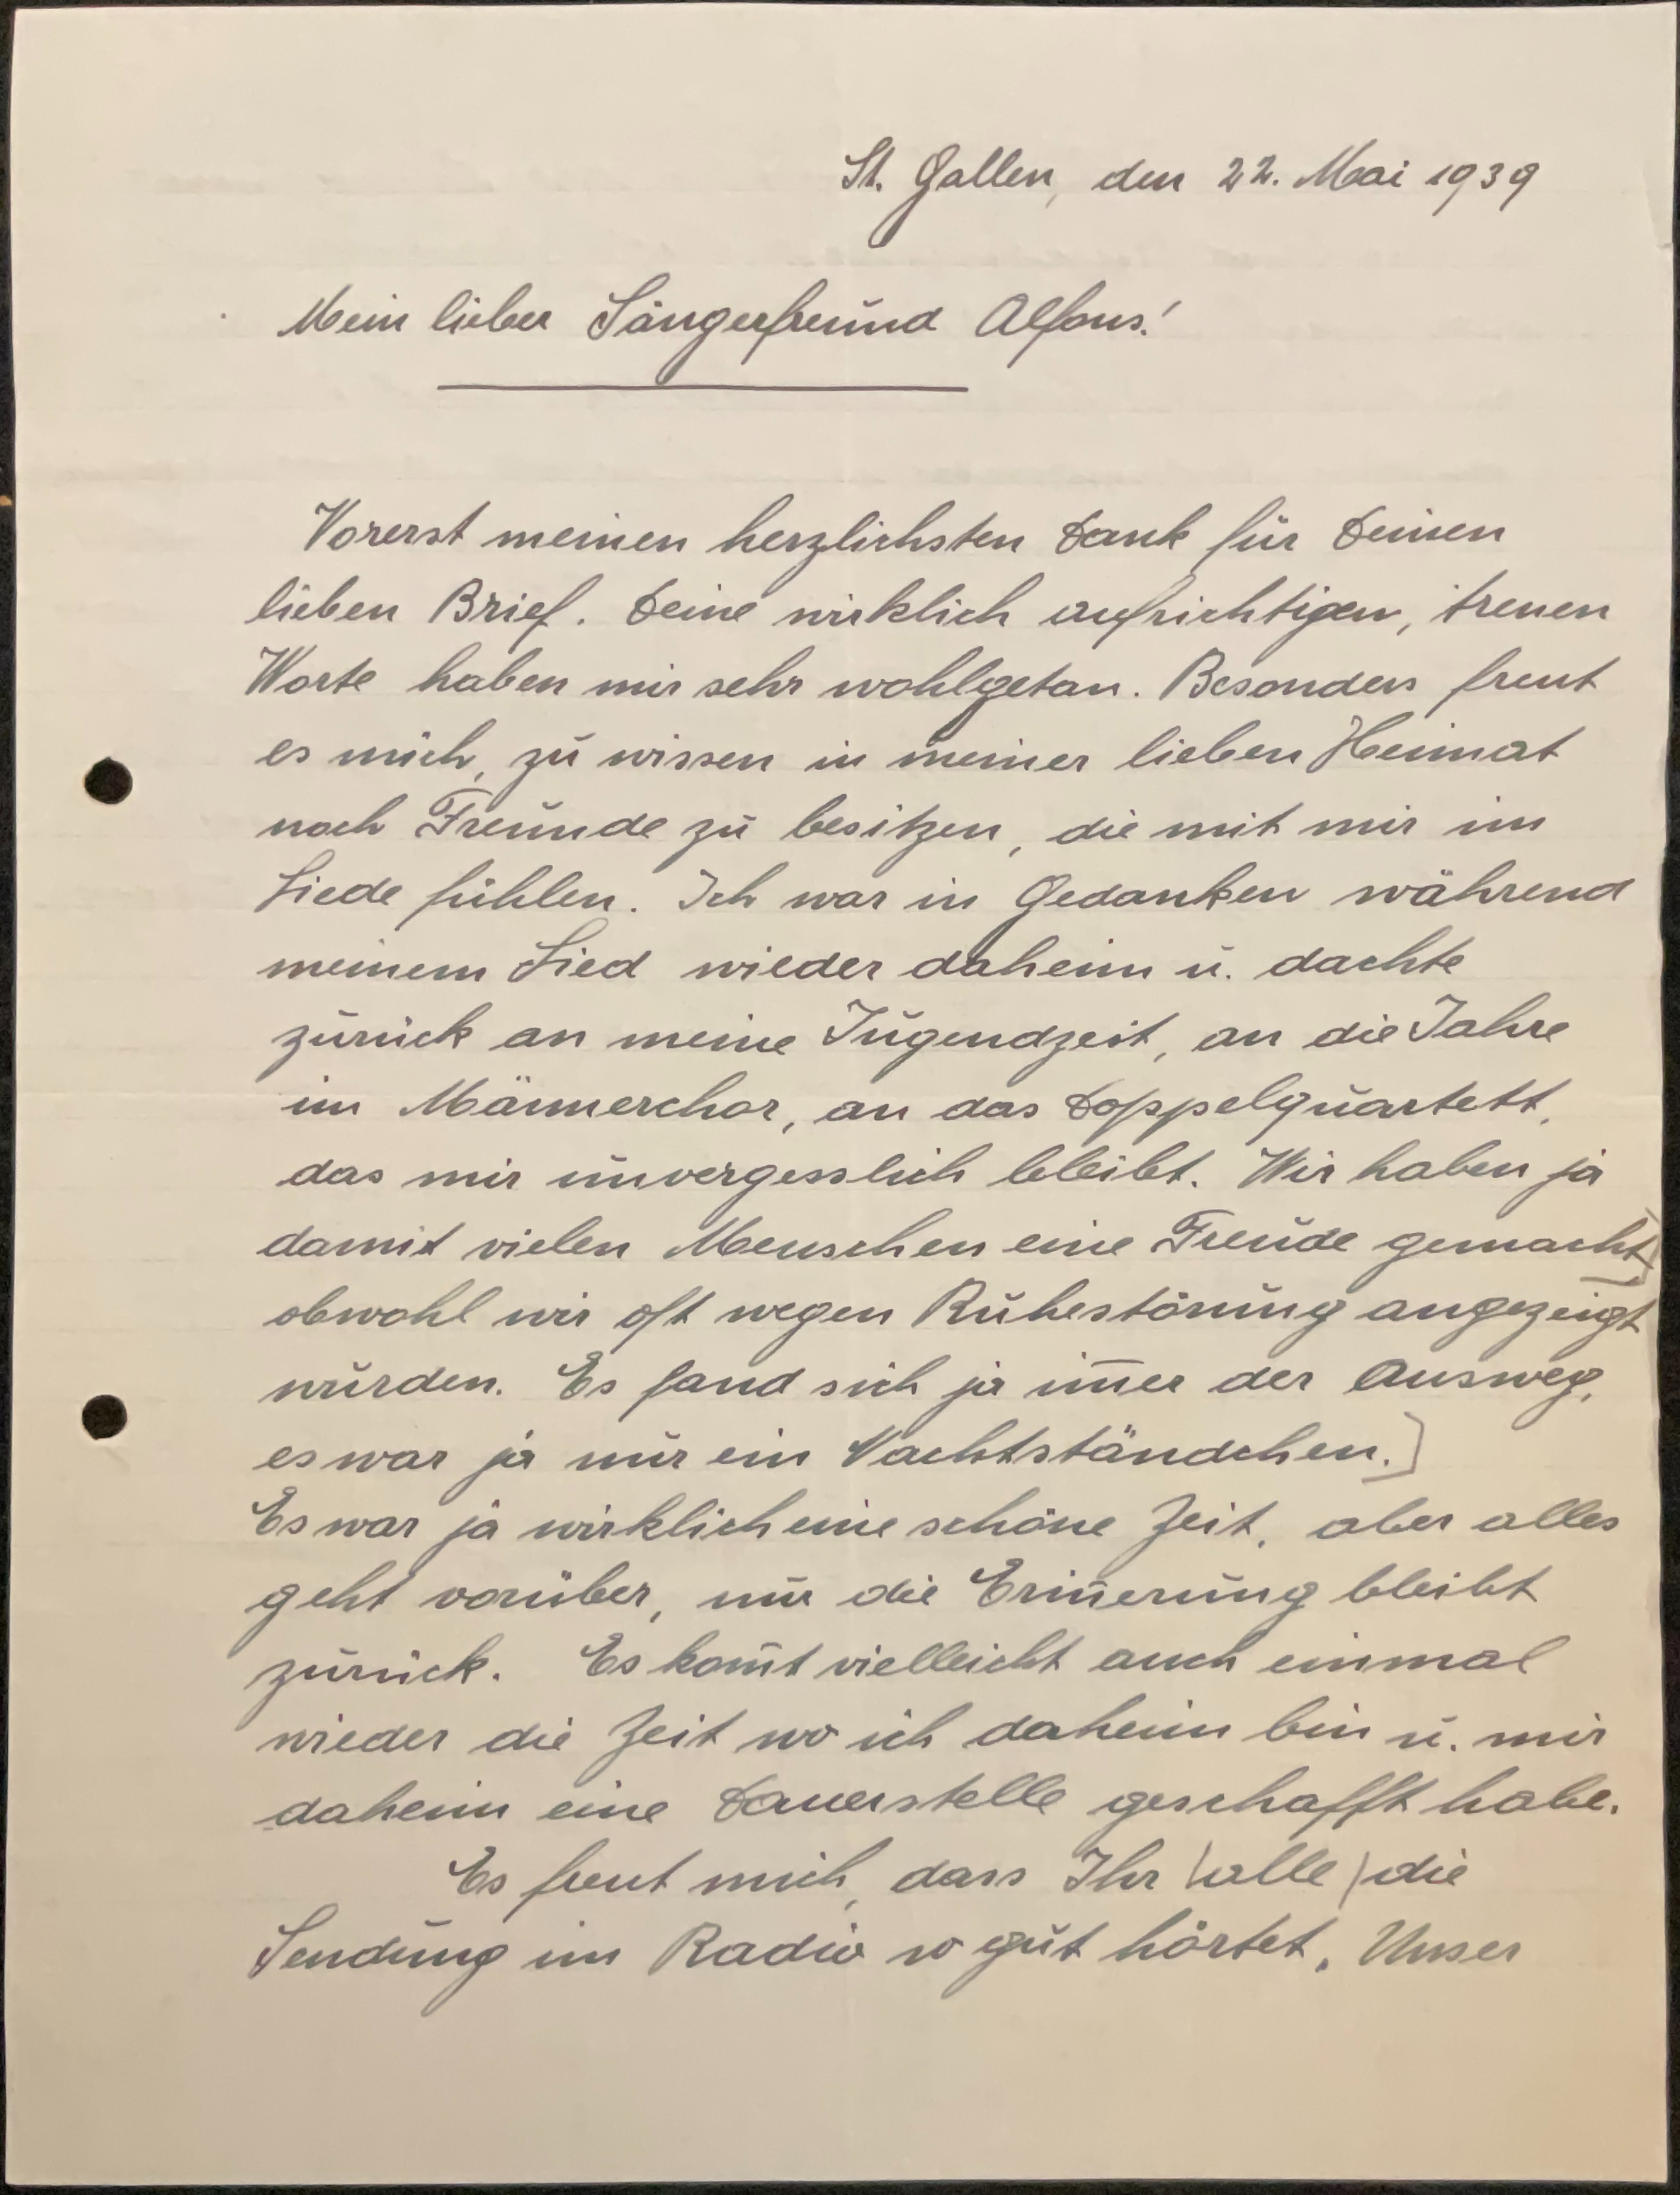 St. Gallen, den 22. Mai 1939
Mein lieber Sängerfreund Alfons!
Vorerst meinen herzlichsten Dank für Deinen
lieben Brief. Deine wirklich aufrichtigen, treuen
Worte haben mir sehr wohlgetan. Besonders freut
es mich, zu wissen in meiner lieben Heimat
noch Freunde zu besitzen, die mit mir im
Liede fühlen. Ich war in Gedanken während
meinem Lied wieder daheim u. dachte
zurück an meine Jugendzeit, an die Jahre
im Männerchor, an das Doppelquartett,
das mir unvergesslich bleibt. Wir haben ja
damit vielen Menschen eine Freude gemacht
obwohl wir oft wegen Ruhestörung angezeigt
wurden. Es fand sich ja im̅er der Ausweg,
es war ja nur ein Nachtständchen.]
Es war ja wirklich eine schöne Zeit, aber alles
geht vorüber, nur die Erin̅erung bleibt
zurück. Es kom̅t vielleicht auch einmal
wieder die Zeit wo ich daheim bin u. mir
daheim eine Dauerstelle geschafft habe.
Es freut mich, dass Ihr (alle) die
Sendung im Radio so gut hörtet. Unser